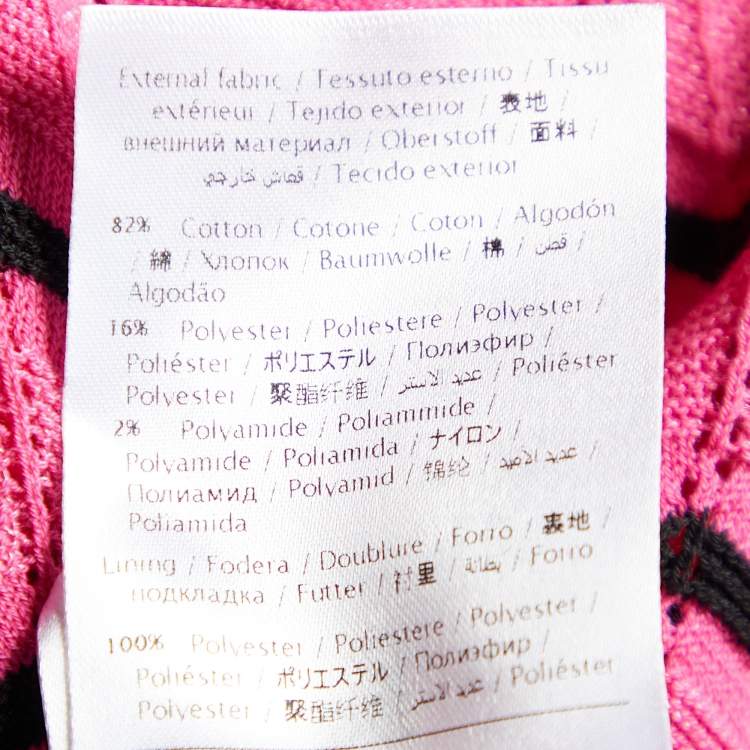 External fabric / Tessuto esterno / Tissu
extérieur / Tejido exterior / 表地 /
внешний материал / Oberstoff / 面料 /
قماش خارجي / Tecido exterior
82% Cotton / Cotone / Coton / Algodón
/ 綿 / Хлопок / Baumwolle / 棉 / قطن /
Algodão
16% Polyester / Poliestere / Polyester /
Poliéster / ポリエステル / Полиэфир /
Polyester / 聚酯纤维 / عديد الاستر / Poliéster
2% Polyamide / Poliammide /
Polyamide / Poliamida / ナイロン /
Полиамид / Polyamid / 锦纶 / عديد الأميد /
Poliamida
Lining / Fodera / Doublure / Forro / 裏地 /
подкладка / Futter / 衬里 / بطانة / Forro
100% Polyester / Poliestere / Polyester /
Poliéster / ポリエステル / Полиэфир /
Polyester / 聚酯纤维 / عديد الاستر / Poliéster